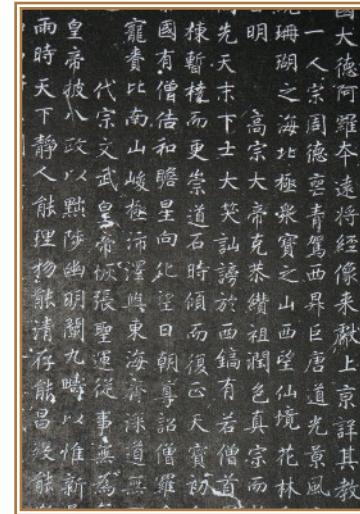 國大德阿羅本遠將經像來獻上京詳其教
一人宗周德喪青駕西昇巨唐道光景風
統珊瑚之海北極衆寶之山西望仙境花林
明 高宗大帝克恭纘祖潤色真宗而
先天末下士大笑訕謗於西鎬有若僧首
棟蹔橈而更崇道石時傾而復正天寶初
國有僧佶和瞻星向化望日朝尊詔僧羅
寵賚比南山峻極沛澤與東海齊深道無
代宗文武皇帝恢張聖運從事無為
皇帝披八政以黜陟幽明闡九疇以惟新
雨時天下靜人能理物能清存能昌歿能